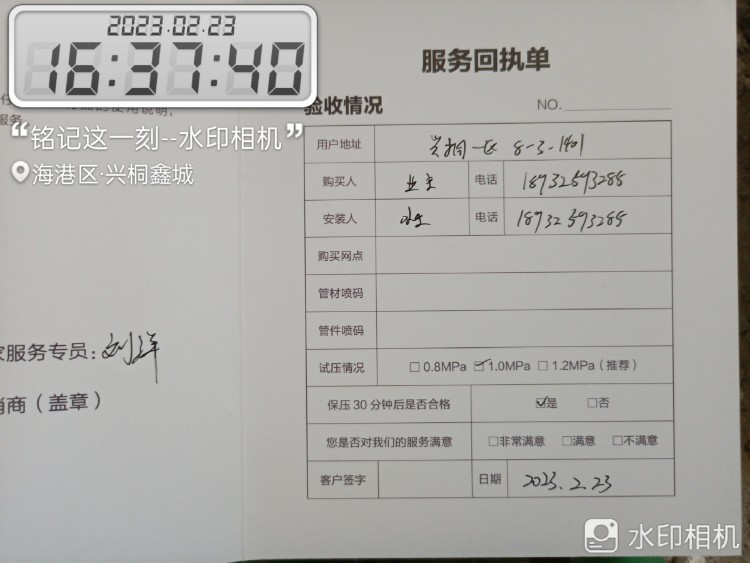 2023.02.23
16:37:40
“铭记这一刻--水印相机”
海港区·兴桐鑫城
服务。
家服务专员：刘洋
销商（盖章）
服务回执单
验收情况 NO.
用户地址 兴桐一区 8-3-1401
购买人 业主 电话 18932593285
安装人 电话 18932593285
购买网点
管材喷码
管件喷码
试压情况 □0.8MPa ☑1.0MPa □1.2MPa（推荐）
保压30分钟后是否合格 ☑是 □否
您是否对我们的服务满意 □非常满意 □满意 □不满意
客户签字 日期 2023.2.23
水印相机